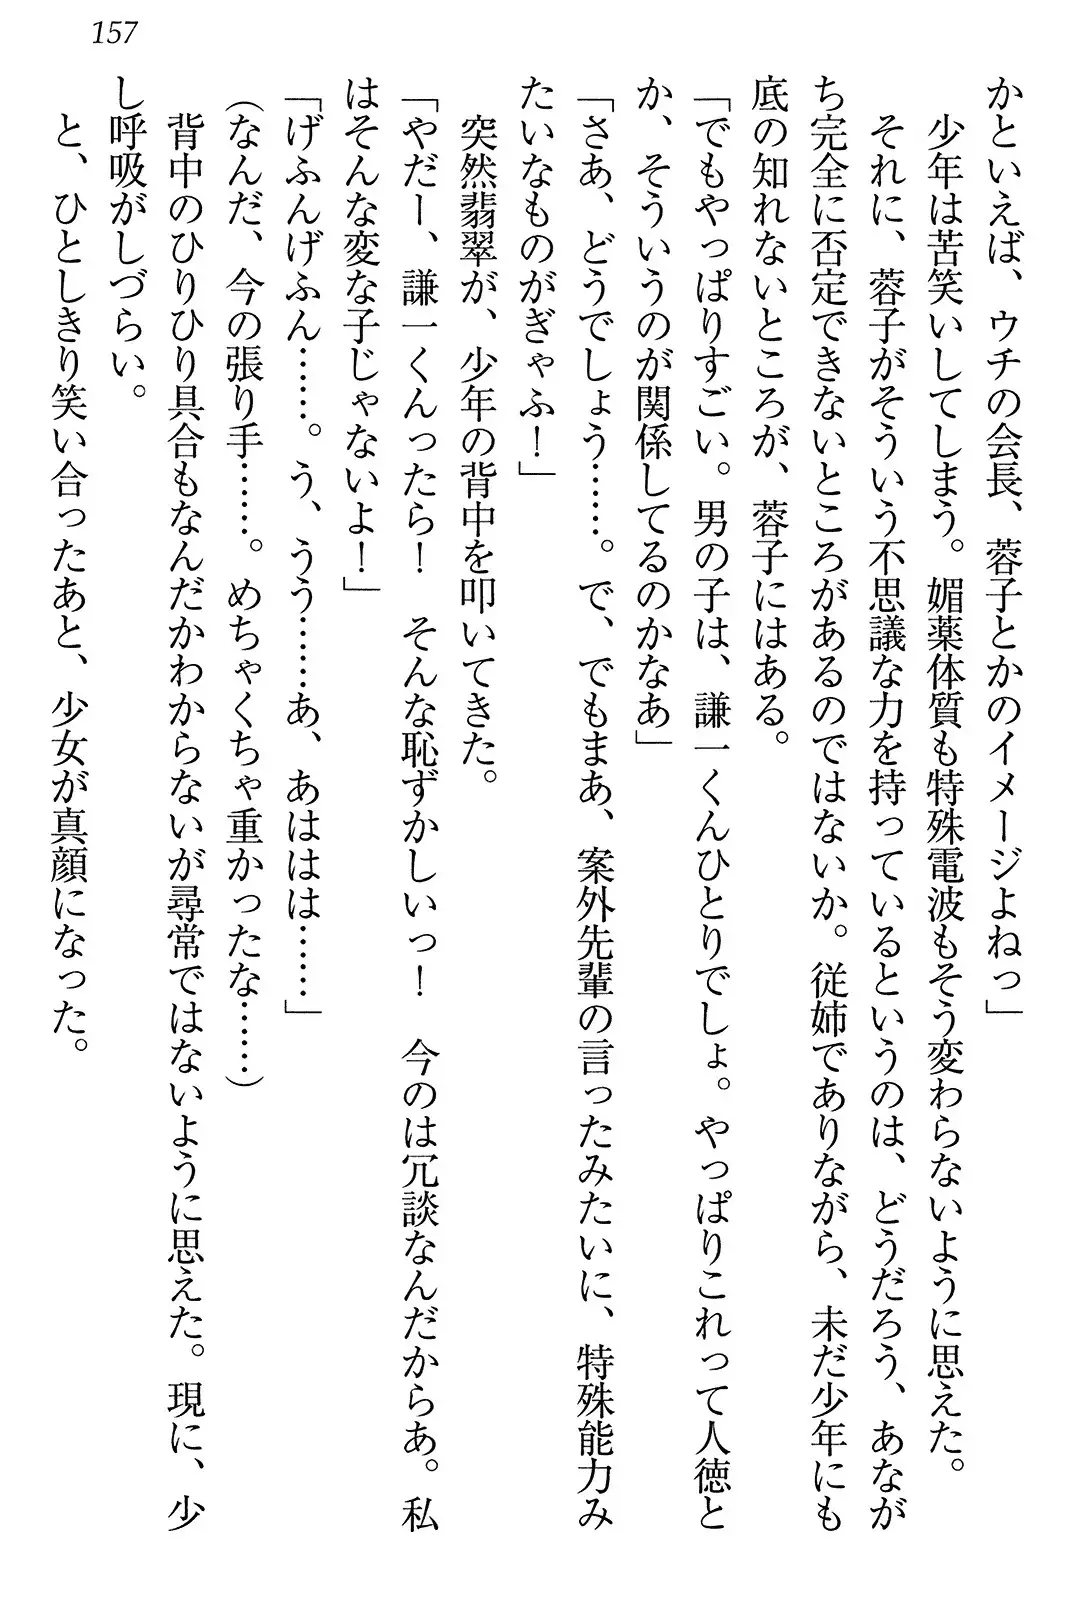 157
かといえば、ウチの会長、蓉子とかのイメージよねっ」
少年は苦笑いしてしまう。媚薬体質も特殊電波もそう変わらないように思えた。
それに、蓉子がそういう不思議な力を持っているというのは、どうだろう、あなが
ち完全に否定できないところがあるのではないか。従姉でありながら、未だ少年にも
底の知れないところが、蓉子にはある。
「でもやっぱりすごい。男の子は、謙一くんひとりでしょ。やっぱりこれって人徳と
か、そういうのが関係してるのかなあ」
「さあ、どうでしょう……。で、でもまあ、案外先輩の言ったみたいに、特殊能力み
たいなものがぎゃふ！」
突然翡翠が、少年の背中を叩いてきた。
「やだー、謙一くんったら！　そんな恥ずかしいっ！　今のは冗談なんだからあ。私
はそんな変な子じゃないよ！」
「げふんげふん……。う、うう……あ、あははは……」
（なんだ、今の張り手……。めちゃくちゃ重かったな……）
背中のひりひり具合もなんだかわからないが尋常ではないように思えた。現に、少
し呼吸がしづらい。
と、ひとしきり笑い合ったあと、少女が真顔になった。